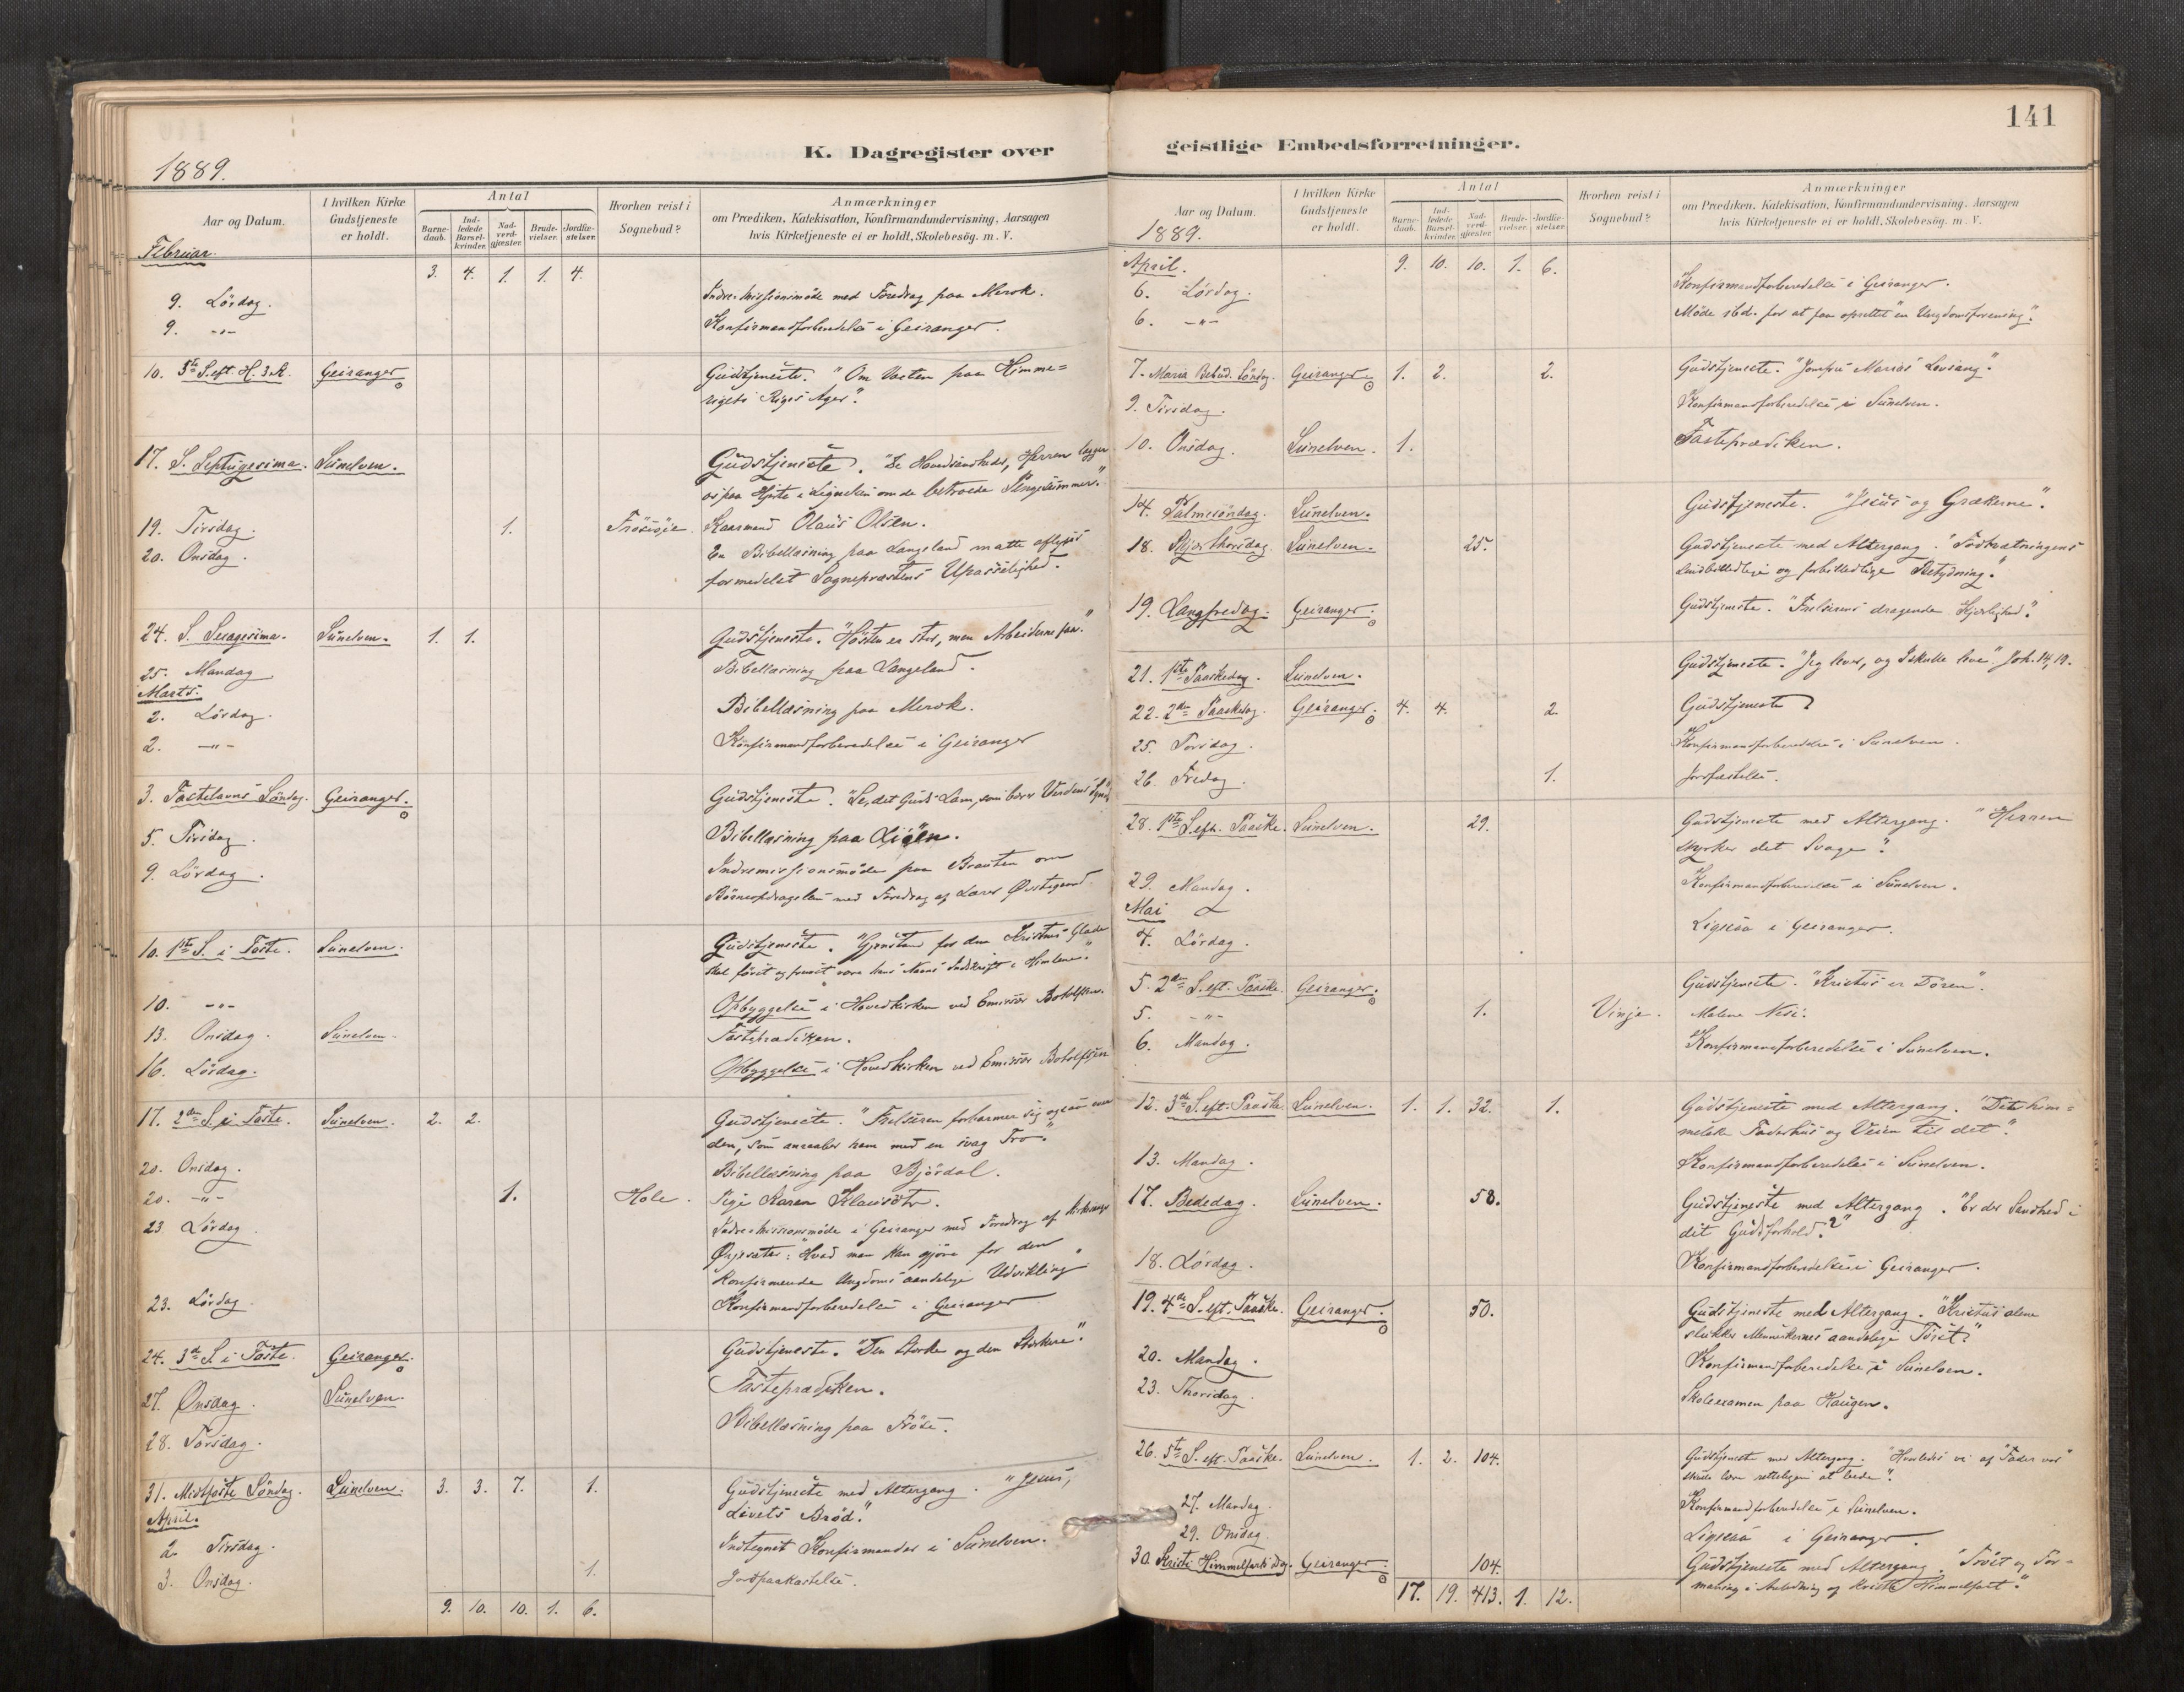 K. Dagregister over
1889.
Aar og Datum.
I hvilken Kirke Gudstjeneste er holdt.
Antal
Barne-daab.
Ind-ledede Barsel-kvinder.
Nad-verd-gjester.
Brude-vielser.
Jordfæ-stelser.
Hvorhen reist i Sognebud?
Anmærkninger
om Prædiken, Katekisation, Konfirmandundervisning, Aarsagen
hvis Kirketjeneste ei er holdt, Skolebesög. m. V.
Februar.
3. 4. 1. 1. 4.
9. Lördag. Indre-Missionsmöde med Foredrag paa Merok.
9. -"- Konfirmandforberedelse i Geiranger.
10. 5te S. eft. H. 3. K. Geiranger Gudstjeneste. "Om Væxten paa Himme=
rigets Riges Ager".
17. S. Septuagesima. Sunelven. Gudstjeneste. "De Hovedsandheder, Herren lægger
os paa Hjerte i Lignelsen om de betroede Pengesummer."
19. Tirsdag. 1. Frösöie. Kaarmand Olaus Olsen.
20. Onsdag. En Bibellæsning paa Langeland maatte aflyses
formedelst Sognepræstens Upasselighed.
24. S. Sexagesima. Sunelven. 1. 1. Gudstjeneste. "Hösten er stor, men Arbeiderne faa."
25. Mandag Bibellæsning paa Langeland.
Marts.
2. Lördag. Bibellæsning paa Merok.
2. -"- Konfirmandforberedelse i Geiranger
3. Fastelavns Söndag. Geiranger. Gudstjeneste. "Se, det Guds Lam, som bærer Verdens Synd."
5. Tirsdag. Bibellæsning paa Liöen.
9. Lördag. Indremissionsmöde paa Brauten om
Börneopdragelsen med Foredrag af Lærer
10. 1ste S. i Faste. Sunelven. Gudstjeneste. "Gjenstand for den Kristnes Glæde
skal först og fremst være hans Navns Indskrift i Himlene."
10. -"- Opbyggelse i Hovedkirken ved Emissær Botolfsen.
13. Onsdag. Sunelven. Fasteprædiken.
16. Lördag. Opbyggelse i Hovedkirken ved Emissær Botolfsen
17. 2den S. i Faste. Sunelven. 2. 2. Gudstjeneste. "Frelseren forbarmer sig ogsaa over
den, som anraaber ham med en svag Tro."
20. Onsdag. Bibellæsning paa Björdal.
20. -"- 1. Hole. Pige Karen Klausdtr.
23. Lördag Indre-Missionsmöde i Geiranger med Foredrag af Kirkesanger
"Hvad man kan gjöre for den
konfirmerede Ungdoms aandelige Udvikling"
23. Lördag. Konfirmandforberedelse i Geiranger
24. 3de S. i Faste. Geiranger. Gudstjeneste. "Den Stærke og den Stærkere".
27. Onsdag. Sunelven. Fasteprædiken.
28. Torsdag. Bibellæsning paa Fröse.
31. Midtfaste Söndag. Sunelven. 3. 3. 7. 1. Gudstjeneste med Altergang. "Jesus,
Livets Bröd."
April.
2. Tirsdag. Indtegnet Konfirmander i Sunelven.
3. Onsdag. 1. Jordpaakastelse.
9. 10. 10. 1. 6.
141
geistlige Embedsforretninger.
Aar og Datum.
I hvilken Kirke Gudstjeneste er holdt.
Antal
Barne-daab.
Ind-ledede Barsel-kvinder.
Nad-verd-gjester.
Brude-vielser.
Jordfæ-stelser.
Hvorhen reist i Sognebud?
Anmærkninger
om Prædiken, Katekisation, Konfirmandundervisning, Aarsagen
hvis Kirketjeneste ei er holdt, Skolebesög. m. V.
1889.
April. 9. 10. 10. 1. 6.
6. Lördag. Konfirmandforberedelse i Geiranger.
6. -"- Möde ibd. for at faa oprettet "en Ungdomsforening".
7. Maria Bebud. Söndag. Geiranger. 1. 2. 2. Gudstjeneste. "Jomfru Marias Lovsang".
9. Tirsdag. Konfirmandforberedelse i Sunelven.
10. Onsdag. Sunelven. 1. Fasteprædiken.
14. Palmesöndag. Sunelven. Gudstjeneste. "Jesus og Grækerne".
18. Skjærthorsdag. Sunelven. 25. Gudstjeneste med Altergang. "Fodtvætningens
sindbilledlige og forbilledlige Betydning."
19. Langfredag. Geiranger. Gudstjeneste. "Frelserens dragende Kjærlighed."
21. 1ste Paaskedag. Sunelven. Gudstjeneste. "Jeg lever, og I skulle leve" Joh. 14, 19.
22. 2den Paaskedag. Geiranger. 4. 4. 2. Gudstjeneste
25. Torsdag. Konfirmandforberedelse i Sunelven.
26. Fredag. 1. Jordfæstelse.
28. 1ste S. eft. Paaske. Sunelven. 29. Gudstjeneste med Altergang. "Herren
styrker det Svage".
29. Mandag. Konfirmandforberedelse i Sunelven.
Mai
4. Lördag. Ligskue i Geiranger.
5. 2den S. eft. Paaske. Geiranger. Gudstjeneste. "Kristus er Dören".
5. -"- 1. Vinje. Malene Nesi.
6. Mandag. Konfirmandforberedelse i Sunelven.
12. 3die S. eft. Paaske. Sunelven. 1. 1. 32. 1. Gudstjeneste med Altergang. "Det him=
melske Faderhus og Veien til det".
13. Mandag. Konfirmandforberedelse i Sunelven.
17. Bededag. Sunelven. 58. Gudstjeneste med Altergang. "Er der Sandhed i
dit Gudsforhold?"
18. Lördag. Konfirmandforberedelse i Geiranger.
19. 4de S. eft. Paaske. Geiranger. 50. Gudstjeneste med Altergang. "Kristus alene
slukker Menneskenes aandelige Törst."
20. Mandag. Konfirmandforberedelse i Sunelven.
23. Thorsdag. Skoleexamen paa Haugen.
26. 5te S. eft. Paaske. Sunelven. 1. 2. 104. Gudstjeneste med Altergang. "Hvorledes vi af "Fader vor"
skulle lære retteligen at bede".
27. Mandag. Konfirmandforberedelse i Sunelven.
29. Onsdag. Ligskue i Geiranger.
30. Kristi Himmelfartsdag. Geiranger. 104. Gudstjeneste med Altergang. "Tröst og For=
maning i Anledning af Kristi Himmelfart."
17. 19. 413. 1. 12.